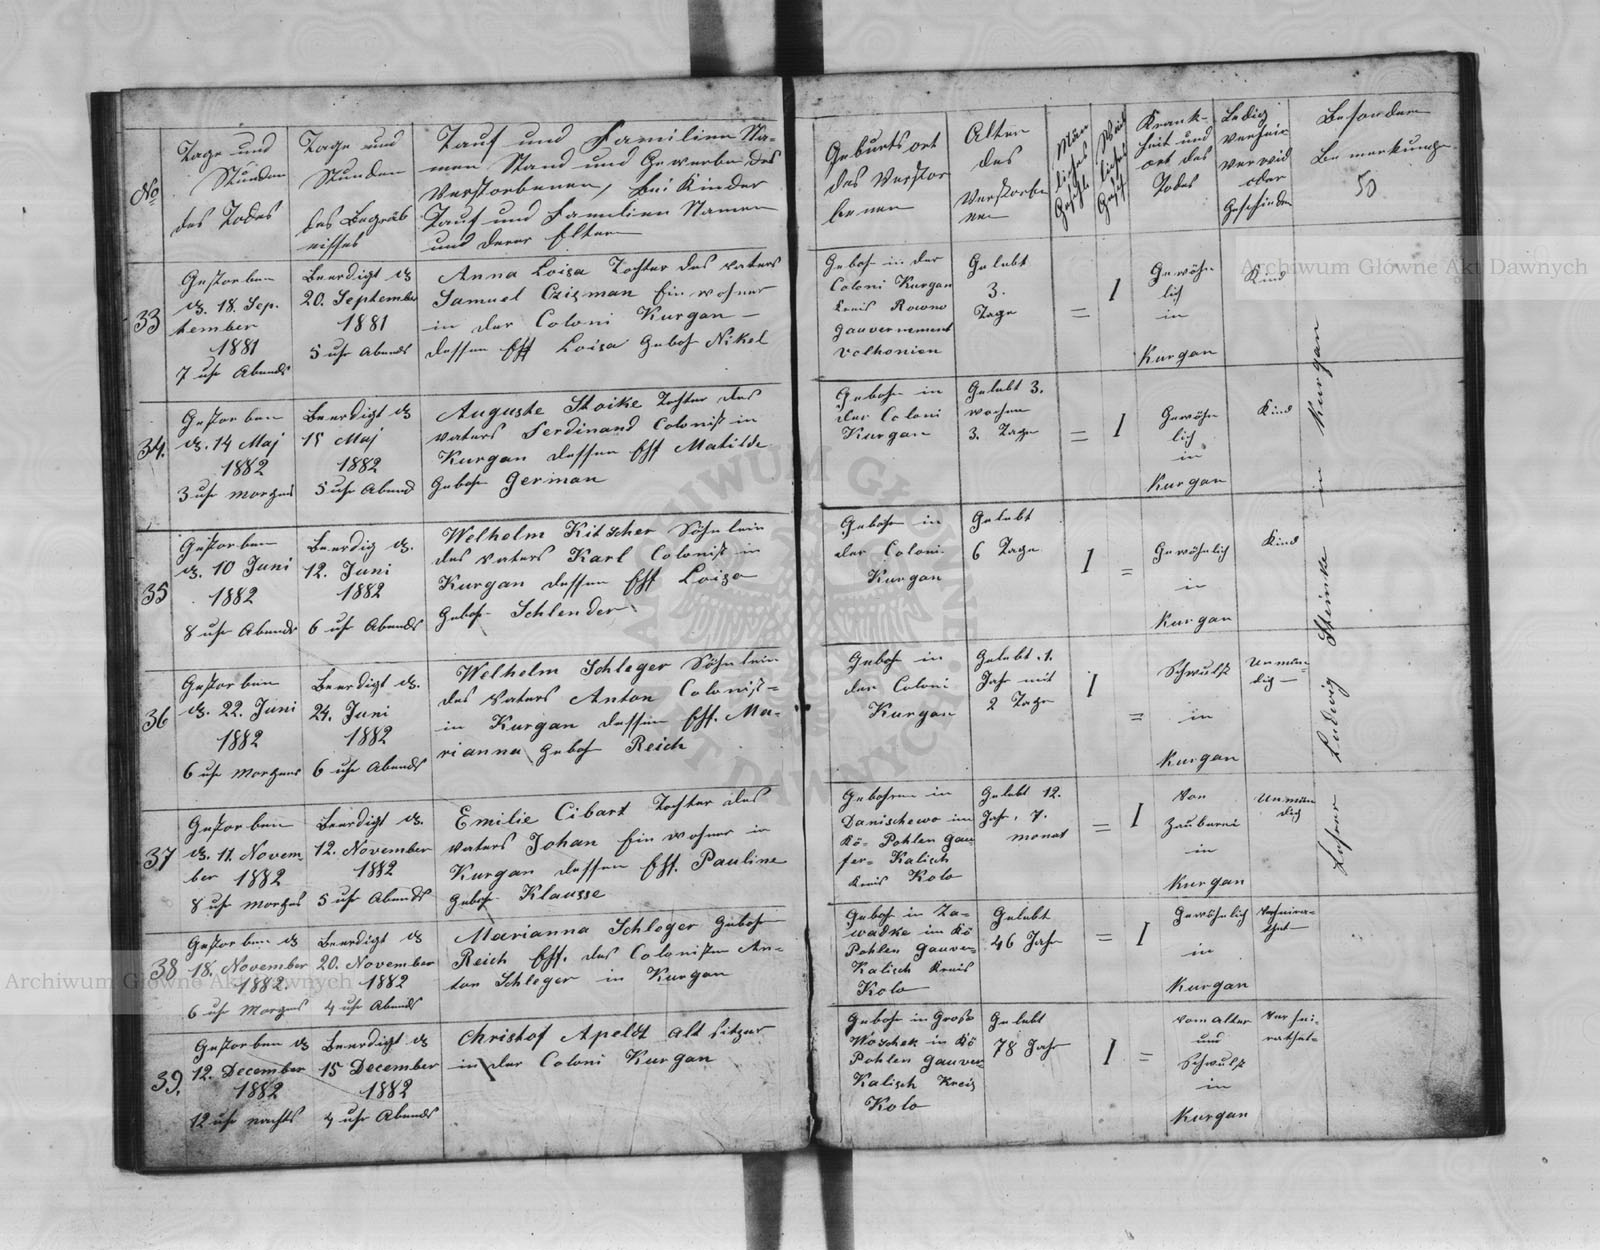 No
Tage und
Stunden
des Todes
Tage und
Stunden
des Begräb
nisses
Tauf und Familien Na-
men Stand und Gewerbe des
Verstorbenen, bei Kinder
Tauf und Familien Namen
und derer Eltern
Geburtsort
des Verstor
benen
Alter
des
Verstorbe
nen
Män
liches
Geschl.
Weib
liches
Geschl
Krank-
heit und
ort des
Todes
Ledig
verheir
verwid
oder
Geschieden
Besondere
Bemerkunge
50
33
Gestorben
d. 18. Sep.
tember
1881
7 uhr Abends
Beerdigt d.
20. September
1881
5 uhr Abends
Anna Loisa Tochter des Vaters
Samuel Czisman Einwohner
in der Coloni Kurgan
dessen Ehf Loisa Geboh Nikel
Geboh in der
Coloni Kurgan
Kreis Rowno
Gauvernement
Volhonien
Gelebt
3.
Tage
=
1
Gewöhn
lich
in
Kurgan
Kind
34.
Gestorben
d. 14 Maj
1882
3 uhr morgens
Beerdigt d.
15 Maj
1882
5 uhr Abend
Auguste Stoike Tochter des
Vaters Ferdinand Colonist in
Kurgan dessen Ehf Matilde
Geboh German
Gebohr in
der Coloni
Kurgan
Gelebt 3.
wochen
3. Tage
=
1
Gewöhn
lich
in
Kurgan
Kind
35
Gestorben
d. 10 Juni
1882
8 uhr Abends
Beerdig d.
12. Juni
1882
6 uhr Abends
Welhelm Kitscher Söhnlein
des Vaters Karl Colonist in
Kurgan dessen Ehf Loisa
Geboh Schlender
Gebohr in
der Coloni
Kurgan
Gelebt
6 Tage
1
=
Gewöhnlich
in
Kurgan
Kind
36
Gestorben
d. 22. Juni
1882
6 uhr morgens
Beerdigt d.
24. Juni
1882
6 uhr Abends
Welhelm Schleger Söhnlein
des Vaters Anton Colonist-
in Kurgan dessen Ehf. Ma-
rianna Geboh Reich
Geboh in
der Coloni
Kurgan
Gelebt .1.
Jahr mit
2 Tage
1
=
Schwulst
in
Kurgan
Unmün-
dig
37
Gestorben
d. 11. Novem
ber 1882
8 uhr morgens
Beerdigt d.
12. November
1882
5 uhr Abends
Emilie Cibart Tochter des
Vaters Johan Einwohner in
Kurgan dessen Ehf. Pauline
Geboh Klausse
Gebohren in
Danischewo im
Kö- Pohlen Gau
fer- Kalisch
Kreis Kolo
Gelebt 12.
Jahr, 7.
monat
=
1
Von
Zauberei
in
Kurgan
Unmün
dig
38
Gestorben d
18. November
1882.
6 uhr Morgens
Beerdigt d
20. November
1882
4 uhr Abends
Marianna Schleger Geboh
Reich Ehf. des Colonisten An-
ton Schleger in Kurgan
Geboh in Za-
wadke im Kö
Pohlen Gauver-
Kalisch Kreis
Kolo
Gelebt
46 Jahr
=
1
Gewöhnlich
in
Kurgan
Verheira-
thet
39.
Gestorben d
12. December
1882
12 uhr nachts
Beerdigt d
15 December
1882
4 uhr Abends
Christof Apeldt Alt sitzer
in der Coloni Kurgan
Geboh in Groß
Woschek in Kö
Pohlen Gauver
Kalisch Kreis
Kolo
Gelebt
78 Jahr
1
=
Vom alter
und
Schwulst
in
Kurgan
Verhei-
rathet-
Lehrer Ludwig Steinke in Kurgan
Archiwum Główne Akt Dawnych
Archiwum Główne Akt Dawnych
ARCHIWUM GŁÓWNE AKT DAWNYCH